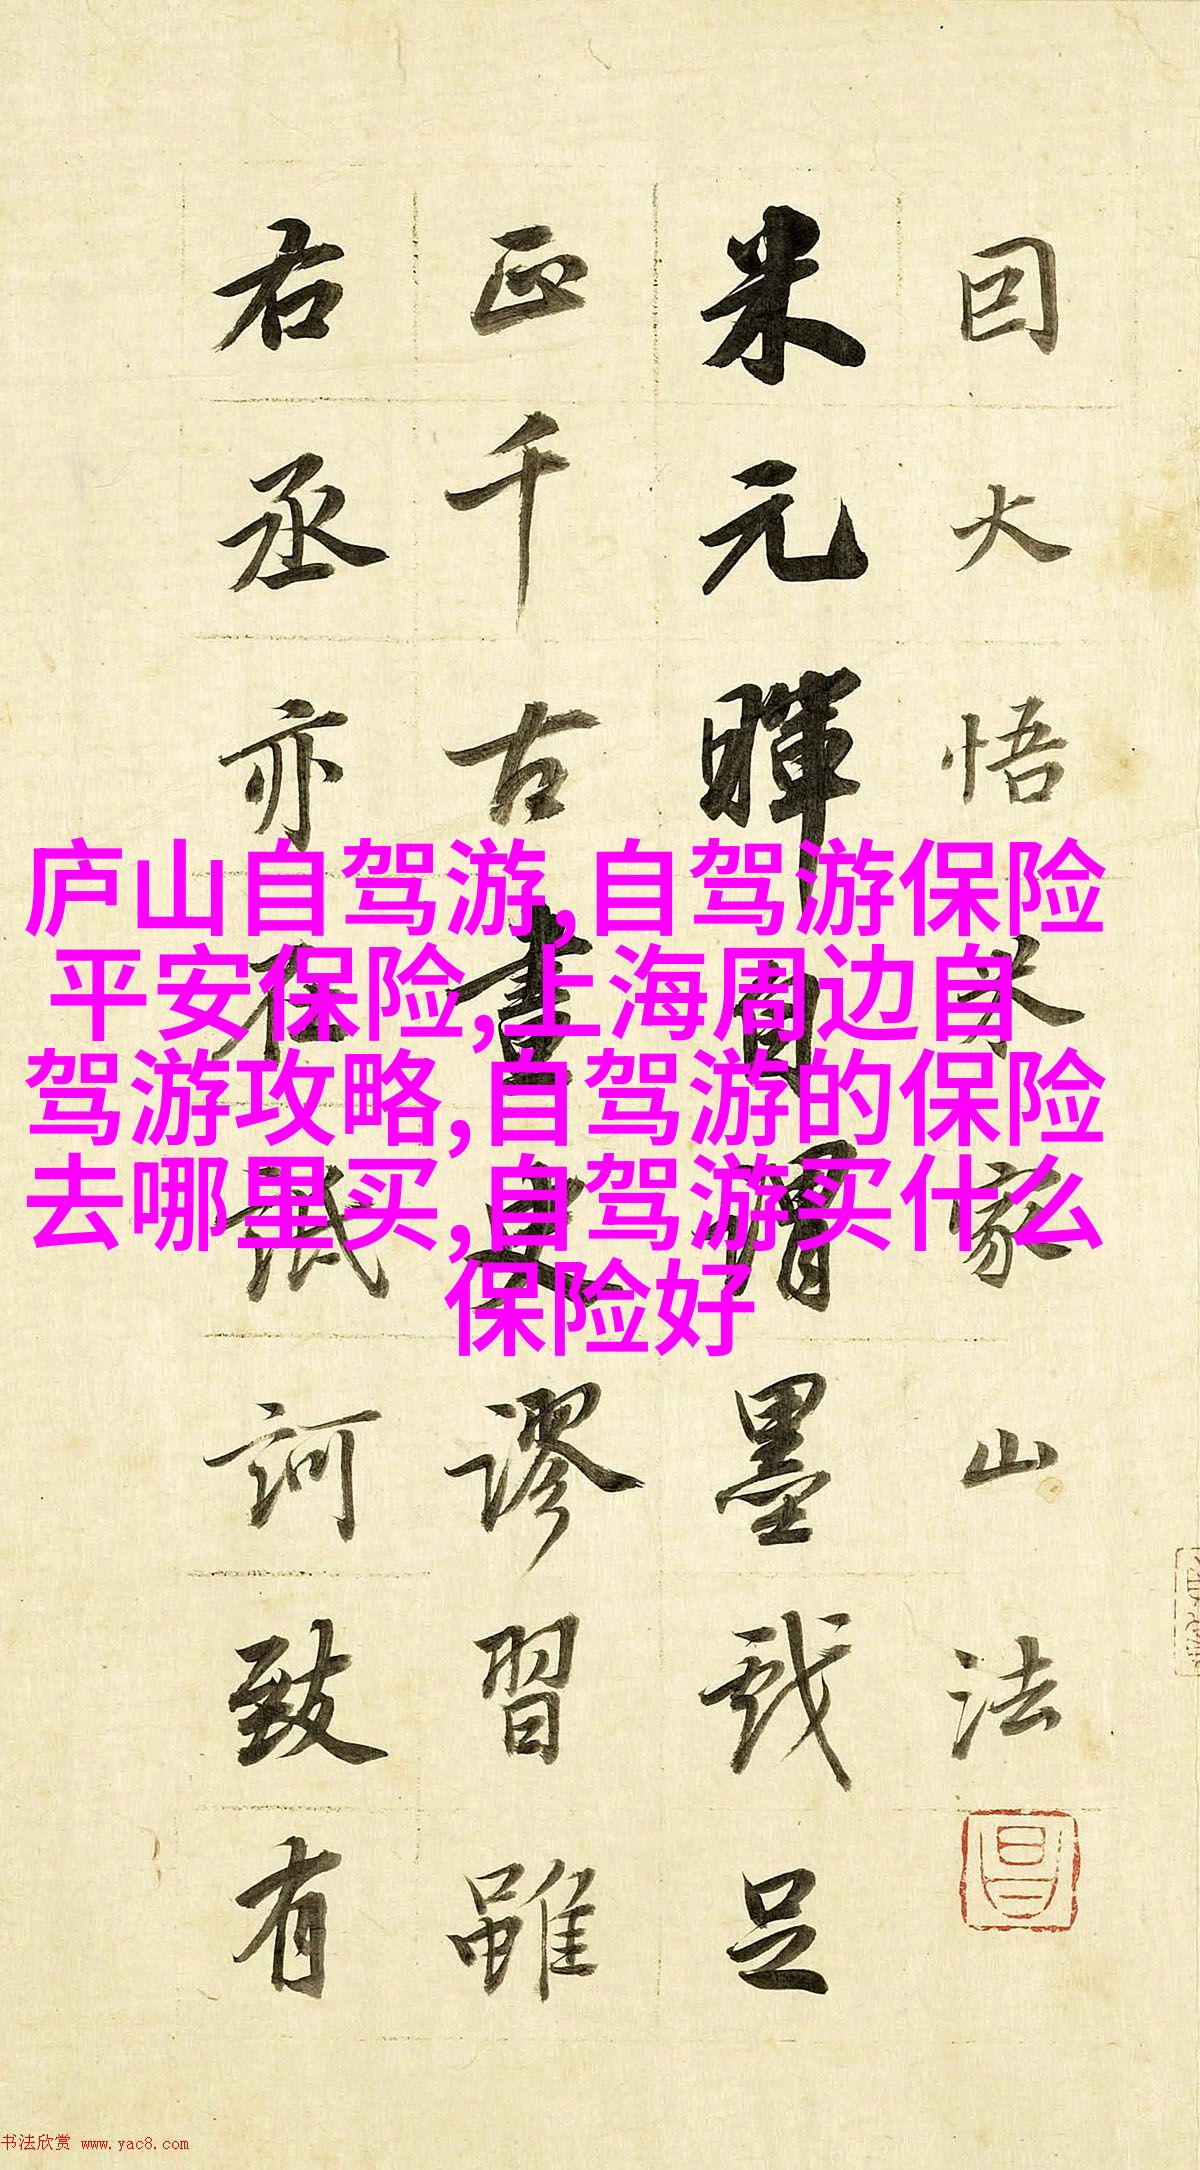 囙大悟米家山法
米元暉自謂墨戲足
正千古畫史謬習雖
右丞亦在詆訶致有
庐山自驾游,自驾游保险
平安保险,上海周边自
驾游攻略,自驾游的保险
去哪里买,自驾游买什么
保险好
昌
书法欣赏 www.yac8.com